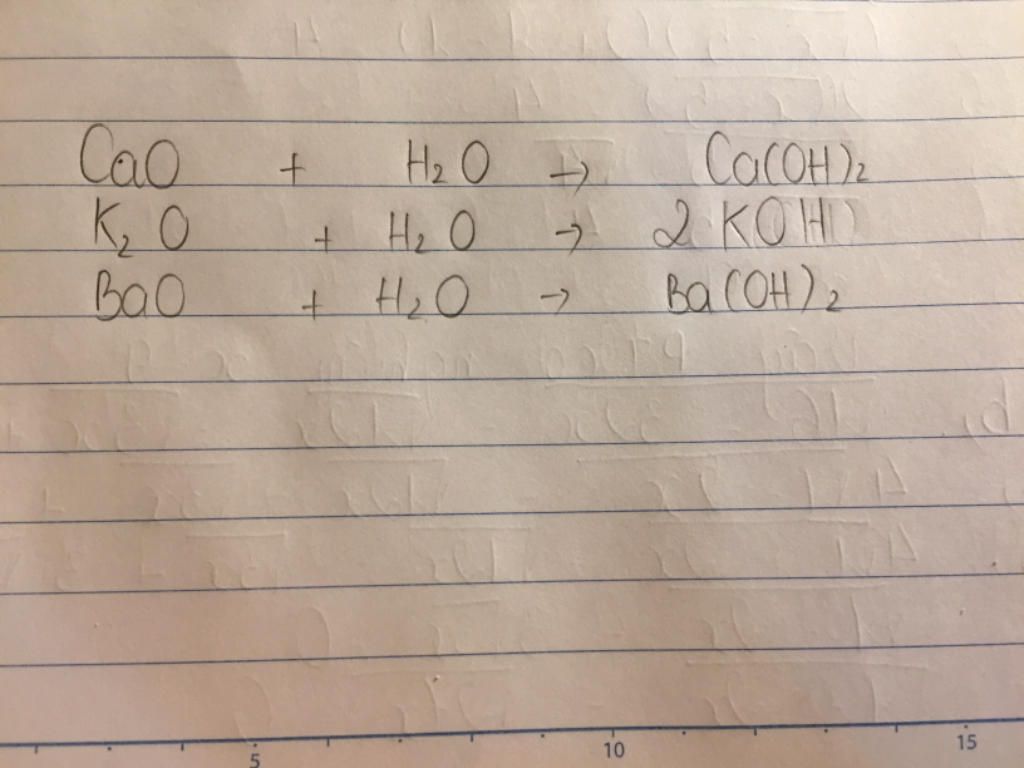 CaO + H₂O → Ca(OH)₂
K₂O + H₂O → 2 KOH
BaO + H₂O → Ba(OH)₂
5 10 15